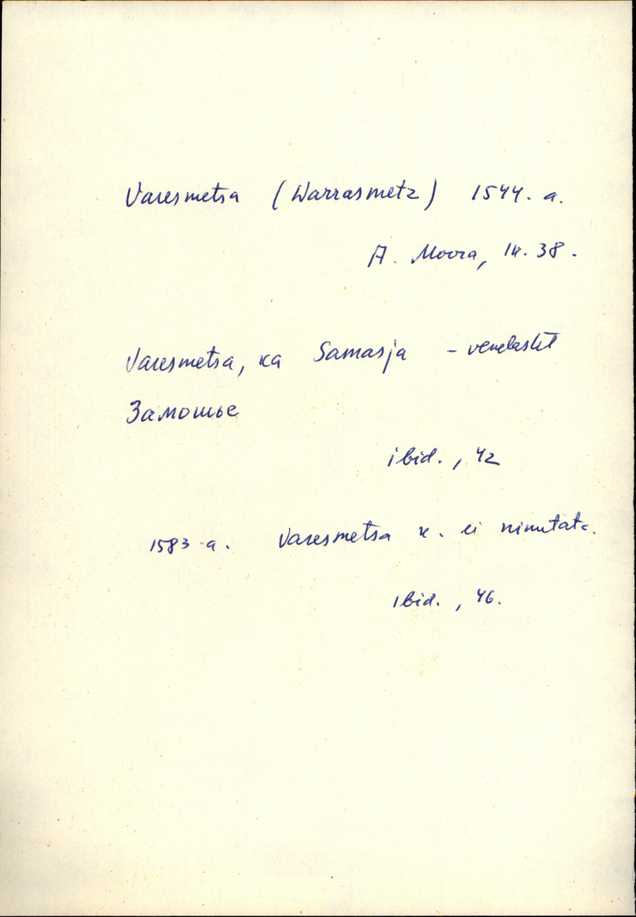 Varesmetsa (Warrasmetz) 1544. a.
A. Moora, lk. 38.
Varesmetsa, ka Samasja - venelastel
Замошье
ibid., 42
1583 a. Varesmetsa k. ei nimetata.
ibid., 46.